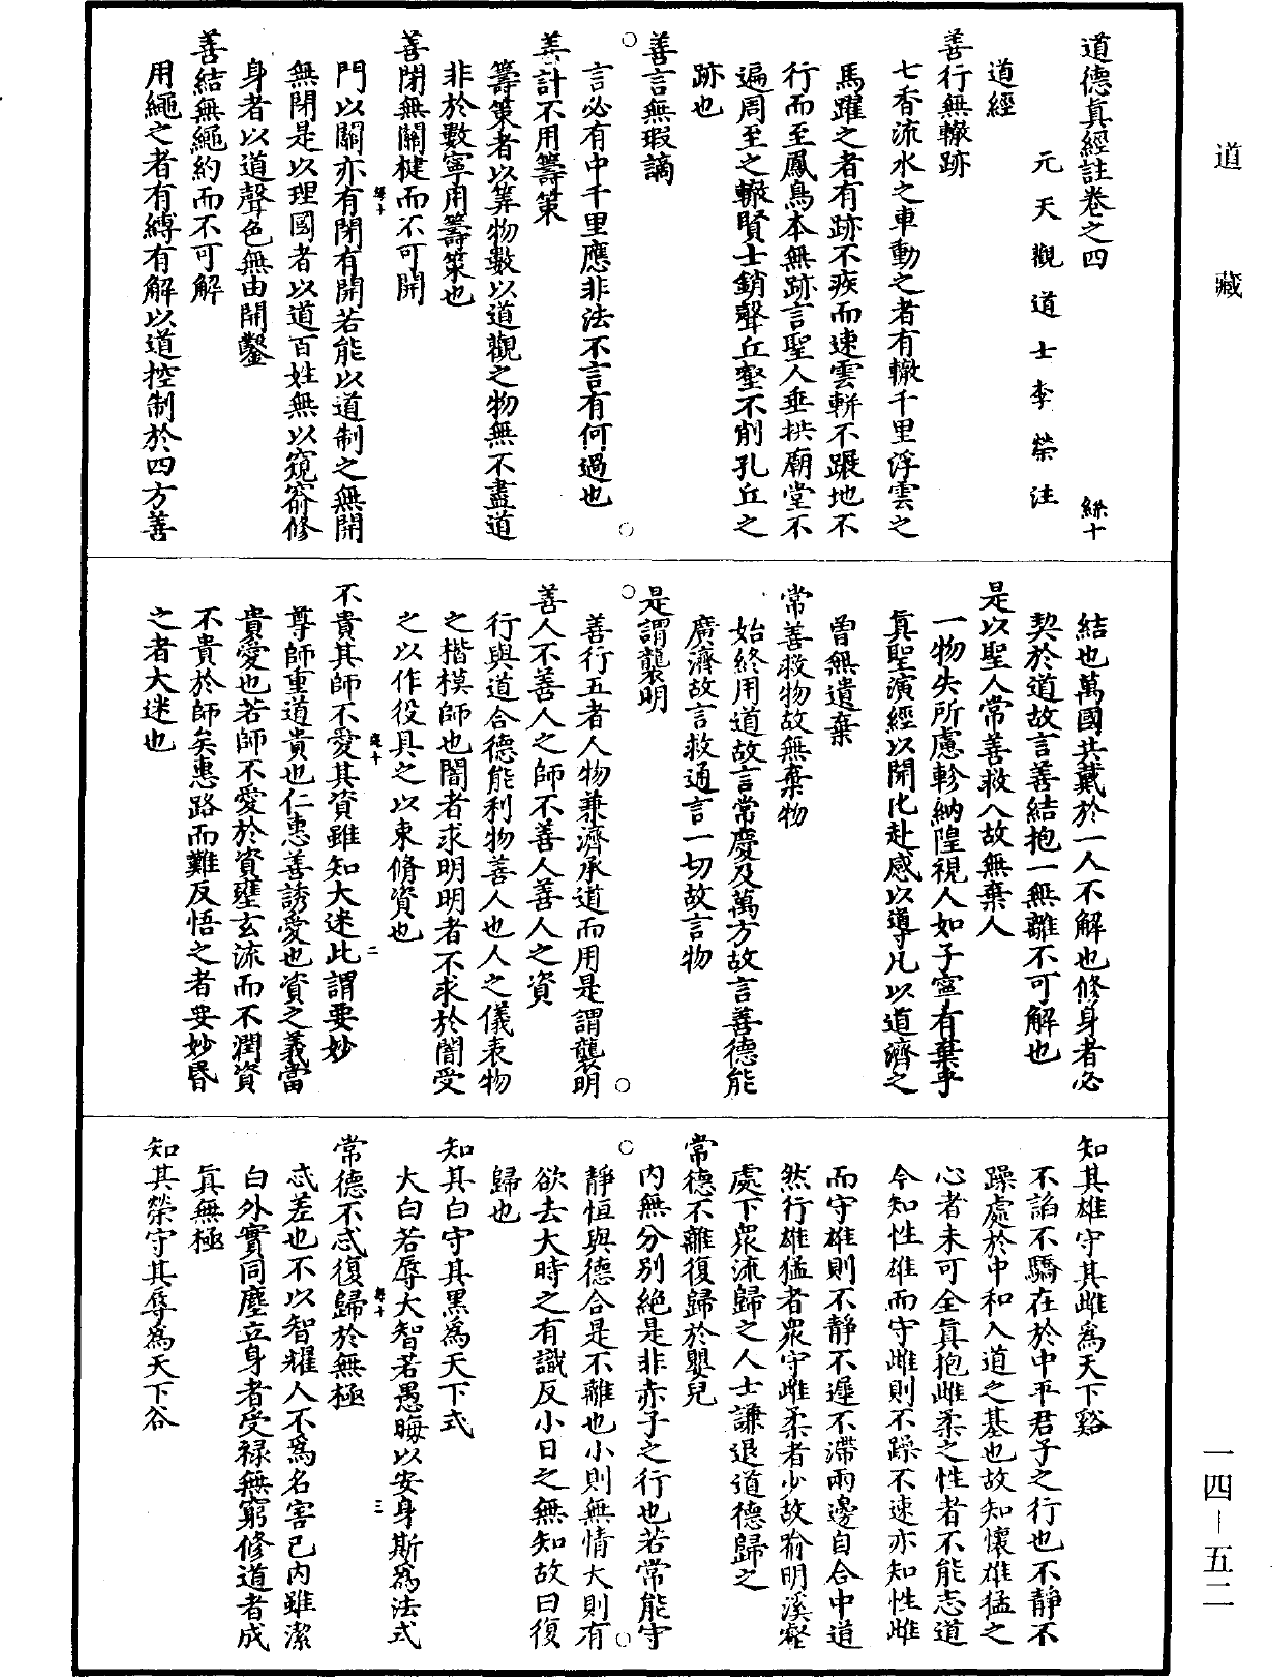 道藏
道德真經註卷之四
絲十
元天觀道士李榮注
道經
善行無轍跡
七香流水之車動之者有轍千里浮雲之
馬躍之者有跡不疾而速雲軿不蹍地不
行而至鳳鳥本無跡言聖人垂拱廟堂不
遍周至之轍賢士銷聲丘壑不削孔丘之
跡也
善言無瑕謫
言必有中千里應非法不言有何過也
善計不用籌策
籌策者以筭物數以道觀之物無不盡道
非於數寧用籌策也
善閉無關楗而不可開
門以關亦有閉有開若能以道制之無開
無閉是以理國者以道百姓無以窺窬修
身者以道聲色無由開鑿
善結無繩約而不可解
用繩之者有縛有解以道控制於四方善
結也萬國共戴於一人不解也修身者必
契於道故言善結抱一無離不可解也
是以聖人常善救人故無棄人
一物失所慮軫納隍視人如子寧有棄乎
真聖演經以開化赴感以導凡以道濟之
曾無遺棄
常善救物故無棄物
始終用道故言常慶及萬方故言善德能
廣濟故言救通言一切故言物
是謂襲明
善行五者人物兼濟承道而用是謂襲明
善人不善人之師不善人善人之資
行與道合德能利物善人也人之儀表物
之楷模師也闇者求明明者不求於闇受
之以作役具之以束脩資也
不貴其師不愛其資雖知大迷此謂要妙
尊師重道貴也仁惠善誘愛也資之義當
貴愛也若師不愛於資壅玄流而不潤資
不貴於師矣惠路而難反悟之者要妙昬
之者大迷也
知其雄守其雌為天下谿
不諂不驕在於中平君子之行也不靜不
躁處於中和入道之基也故知懷雄猛之
心者未可全真抱雌柔之性者不能志道
今知性雄而守雌則不躁不速亦知性雌
而守雄則不靜不遲不滯兩邊自合中道
然行雄猛者眾守雌柔者少故喻明溪壑
處下眾流歸之人士謙退道德歸之
常德不離復歸於嬰兒
內無分別絕是非赤子之行也若常能守
靜恒與德合是不離也小則無情大則有
欲去大時之有識反小日之無知故曰復
歸也
知其白守其黑為天下式
大白若辱大智若愚晦以安身斯為法式
常德不忒復歸於無極
忒差也不以智耀人不為名害己內雖潔
白外實同塵立身者受祿無窮修道者成
真無極
知其榮守其辱為天下谷
一四－五二